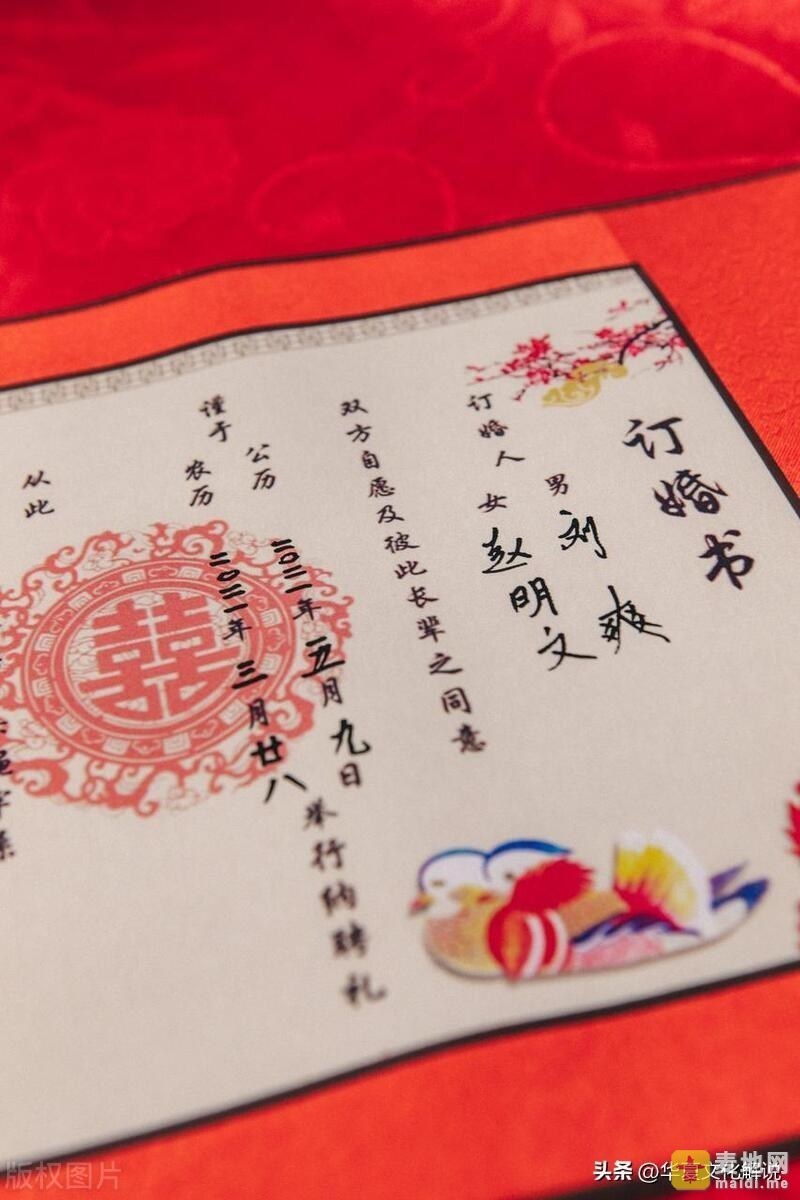 订婚书
男 刘爽
订婚人 女 赵明文
双方自愿及彼此长辈之同意
谨于
公历 二〇二一年 五月九日
农历 二〇二一年 三月廿八
举行纳聘礼
从此
囍
版权图片
头条 @华 文化解说
麦地网
maidi.me